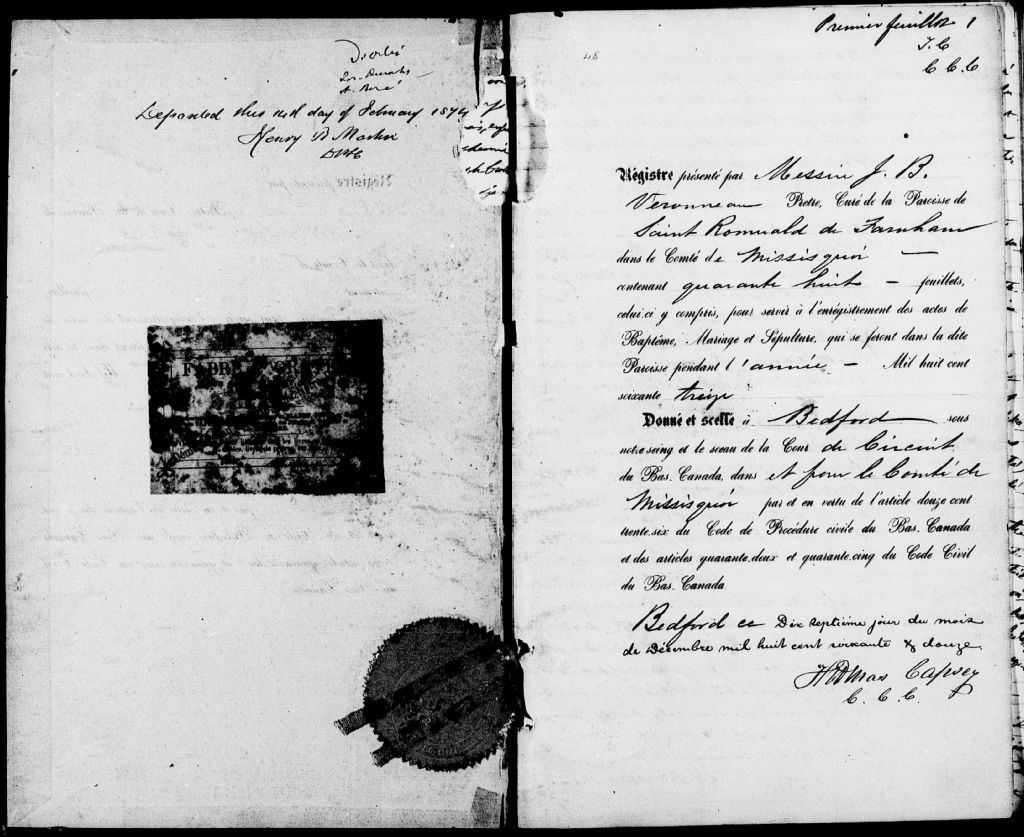 Deposited this 14th day of February 1874
Henry B
Premier feuillet 1
T. C
C. C. C
48
Régistre présenté par Messire J. B.
Veronneau Prêtre, Curé de la Paroisse de
Saint Romuald de Farnham
dans le Comté de Missisquoi —
contenant quarante huit — feuillets,
celui-ci y compris, pour servir à l'enrégistrement des actes de
Baptême, Mariage et Sépulture, qui se feront dans la dite
Paroisse pendant l'année — Mil huit cent
soixante treize
Donné et scellé à Bedford sous
notre seing et le sceau de la Cour de Circuit
du Bas-Canada, dans et pour le Comté de
Missisquoi par et en vertu de l'article douze cent
trente-six du Code de Procédure civile du Bas-Canada
et des articles quarante-deux et quarante-cinq du Code Civil
du Bas-Canada.
Bedford ce Dix septième jour du mois
de Décembre mil huit cent soixante & douze
Thomas
C. C. C.